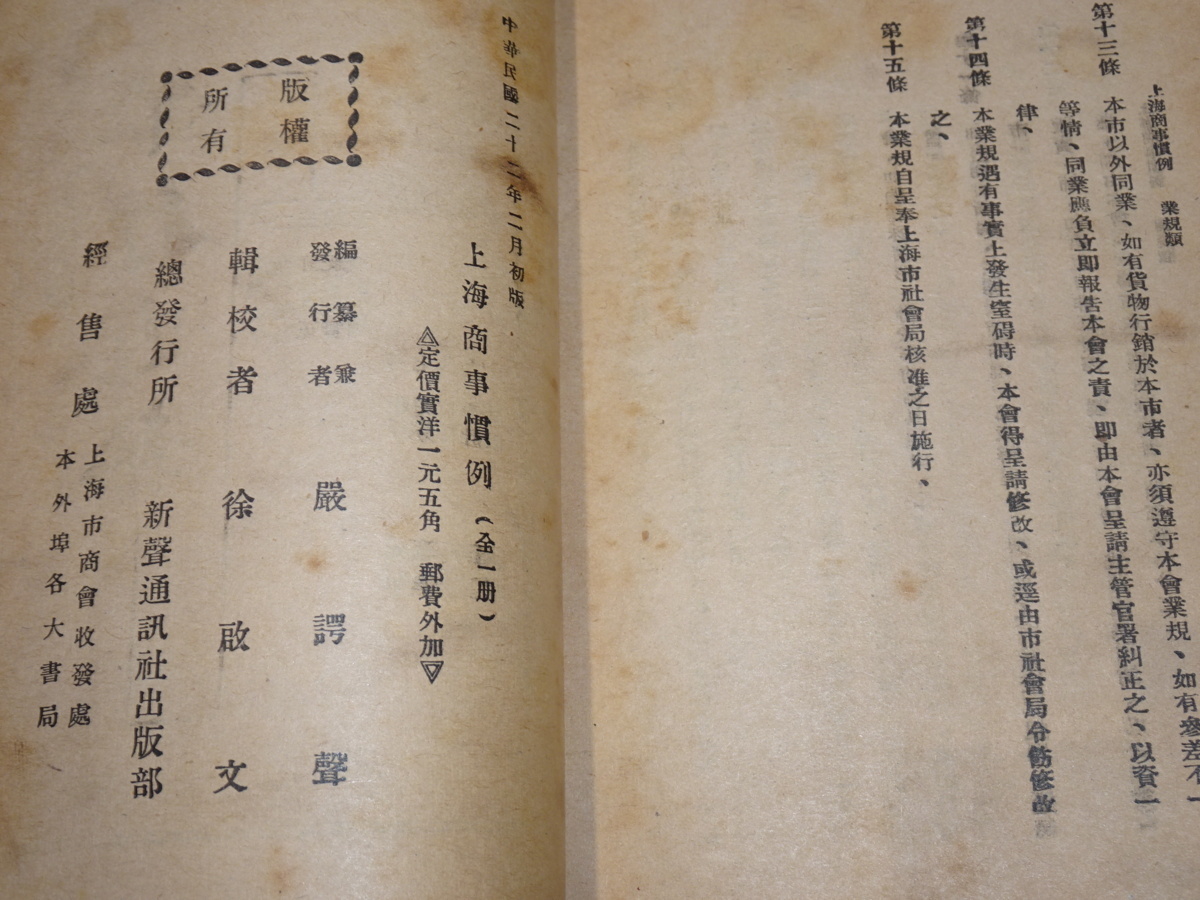 上海商事慣例　業規類
第十三條　本市以外同業、如有貨物行銷於本市者、亦須遵守本會業規、如有參差不一
等情、同業應負立卽報告本會之責、卽由本會呈請主管官署糾正之、以資一
律、
第十四條　本業規遇有事實上發生窒碍時、本會得呈請修改、或逕由市社會局令飭修改
之、
第十五條　本業規自呈奉上海市社會局核准之日施行、
中華民國二十二年二月初版
上海商事慣例（全一册）
△定價實洋一元五角　郵費外加▽
編纂兼
發行者　嚴諤聲
輯校者　徐啟文
總發行所　新聲通訊社出版部
經售處　上海市商會收發處
本外埠各大書局
版權
所有